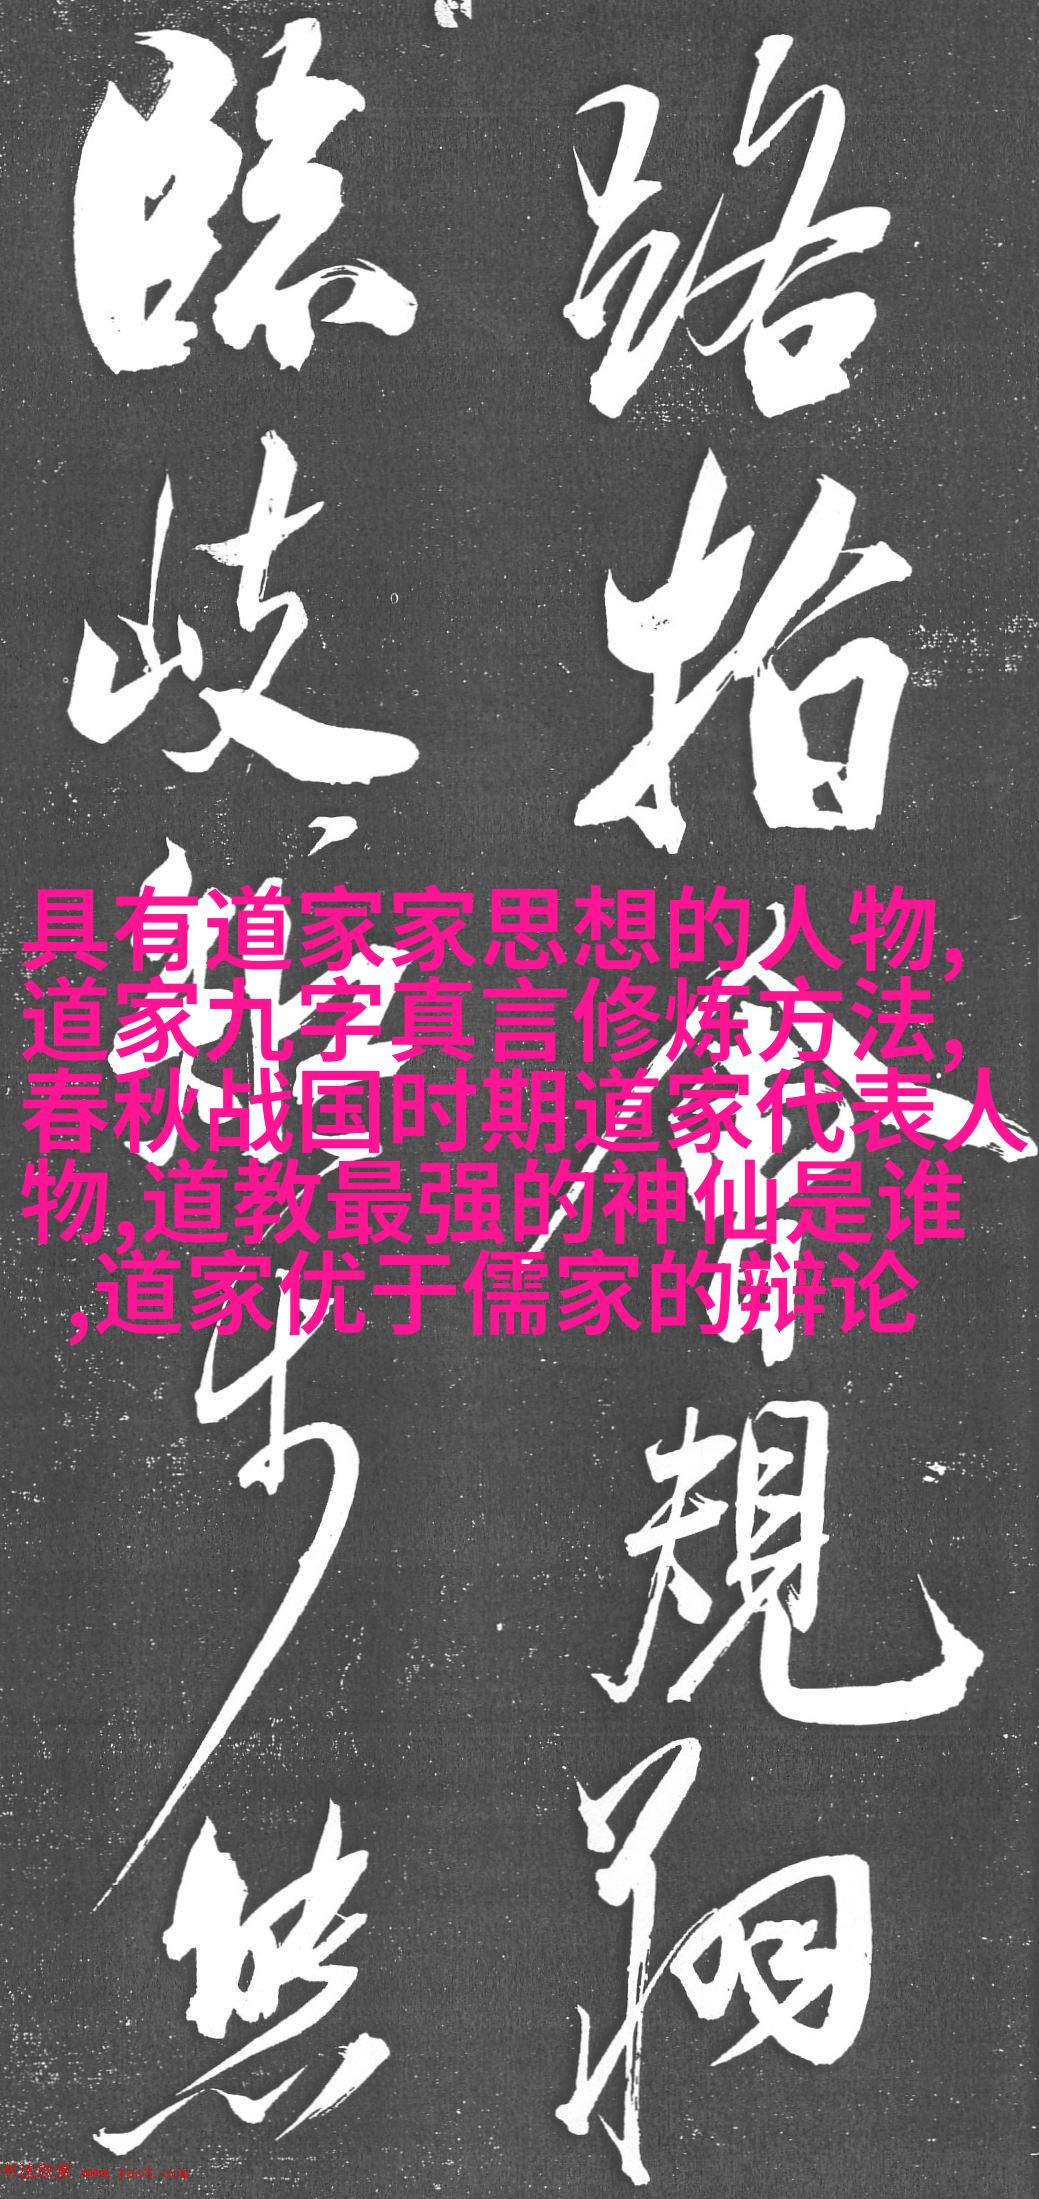 路指會規翔
臨歧步
具有道家家思想的人物,
道家九字真言修炼方法,
春秋战国时期道家代表人
物,道教最强的神仙是谁
,道家优于儒家的辩论
书法欣赏 www.yac8.com